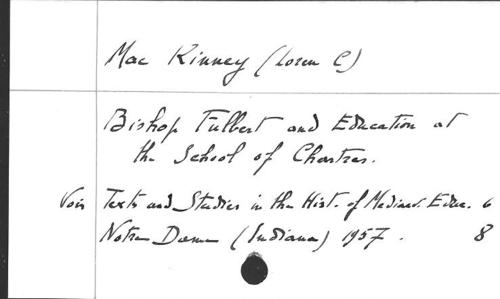 Mac Kinney (Loren C)
Bishop Fulbert and Education at
the School of Chartres.
Voir Texts and Studies in the Hist. of Mediaev. Educ. 6
Notre Dame (Indiana) 1957. 8